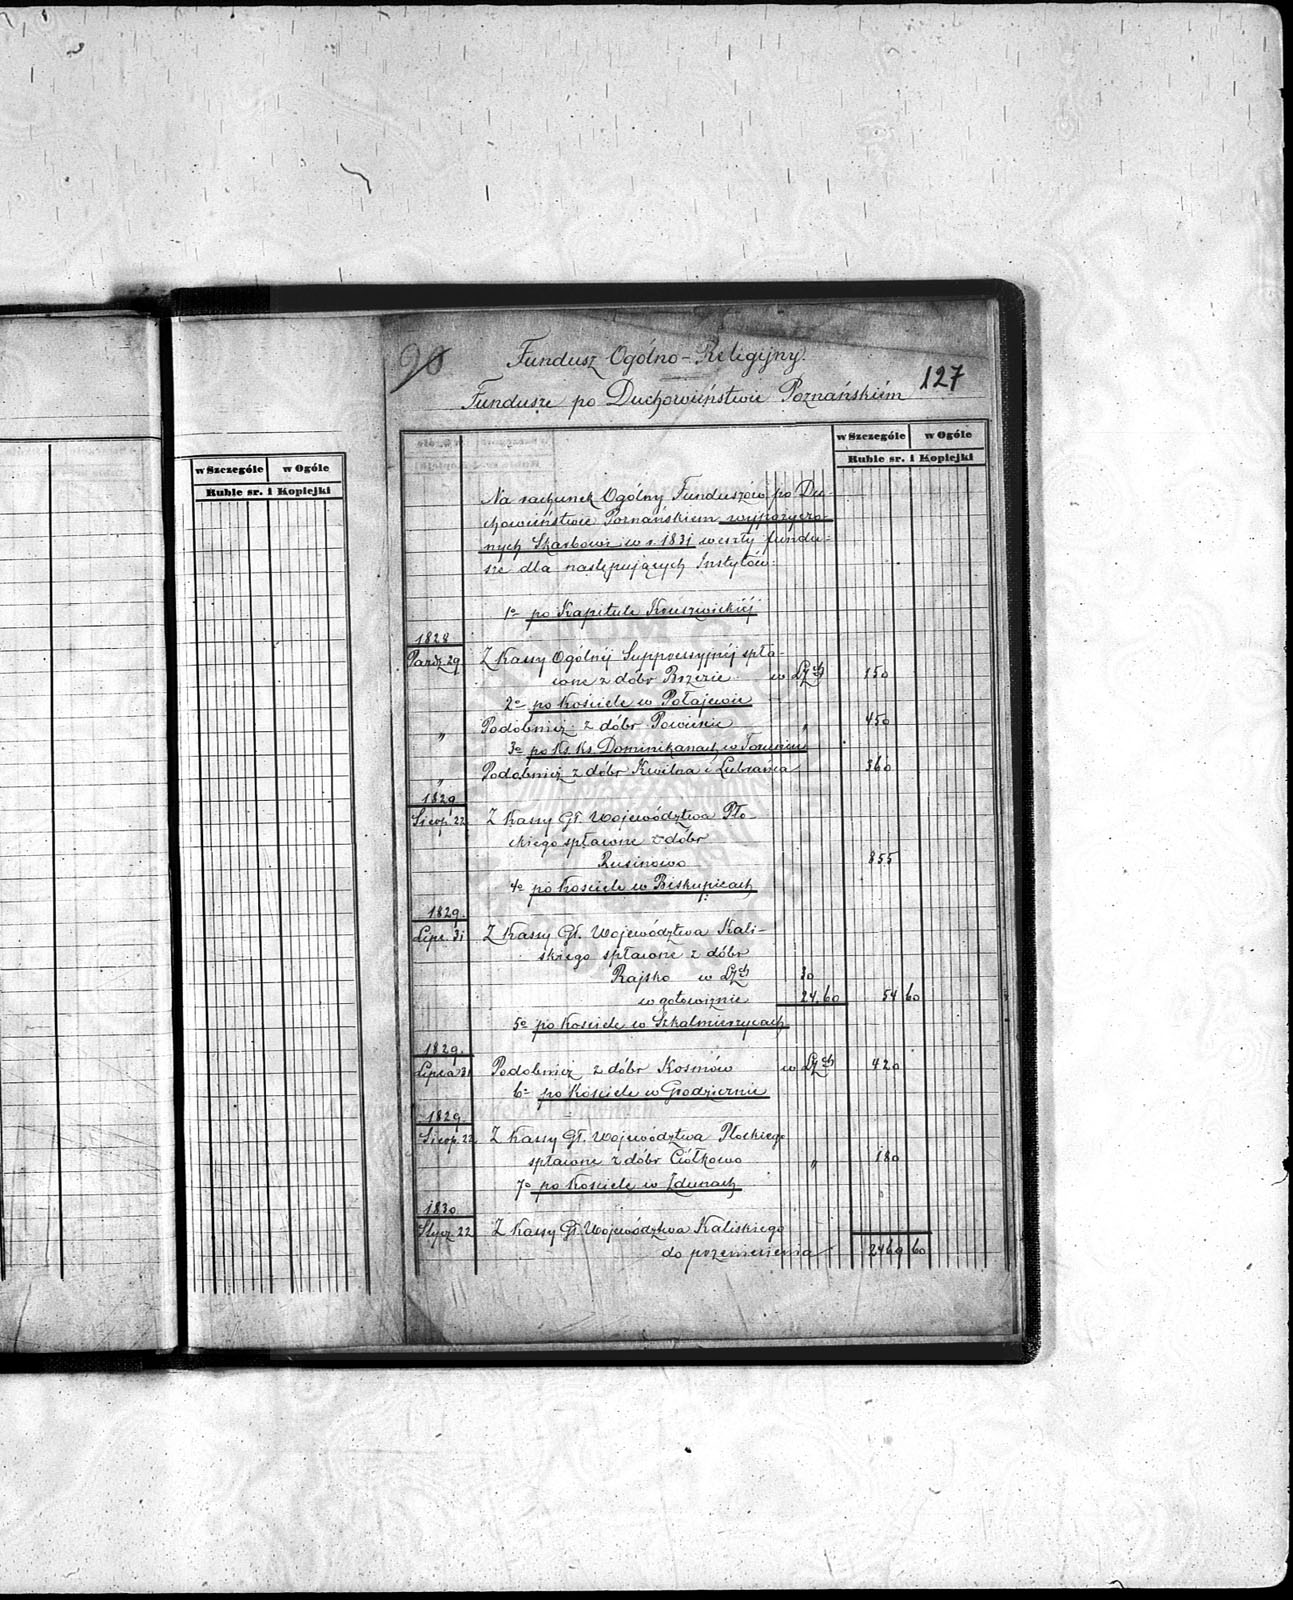 w Szczególe w Ogóle
Ruble sr. i Kopiejki
90
Fundusz Ogólno-Religijny.
127
Fundusze po Duchowieństwie Poznańskiém
w Szczególe w Ogóle
Ruble sr. i Kopiejki
Na rachunek Ogólny Funduszów po Du-
chowieństwie Poznańskiem wypożyczo-
nych Skarbowi w r. 1831 weszły fundu-
sze dla następujących Instytów:
1o po Kapitule Kruszwickiéj
1828
Paźdz. 29 Z Kassy Ogólnéj Suppressyjnéj spła-
cone z dóbr Brzezie w Lzch 150
2o po Kościele w Połajewie
" Podobnież z dóbr Powicie " 450
3o po Ks. Ks. Dominikanach w Toruniu
" Podobnież z dóbr Kwilna i Lubrańca 360
1829
Sierp. 22 Z Kassy Gł. Województwa Pło
ckiego spłacone z dóbr
Rusinowo 855
4o po Kościele w Biskupicach
1829.
Lipc. 31 Z Kassy Gł. Województwa Kali-
skiego spłacone z dóbr
Rajsko w Lzch 30
w gotowiźnie 24.60 54 60
5o po Kościele w Szkalmierzycach
1829.
Lipca 31 Podobnież z dóbr Kosmów w Lzch 420
6o po Kościele w Grodzicznie
1829.
Sierp. 22 Z Kassy Gł. Województwa Płockiego
spłacone z dóbr Ciółkowo " 180
7o po Kościele w Zdunach
1830
Stycz. 22 Z Kassy Gł. Województwa Kaliskiego
do przeniesienia 2469 60